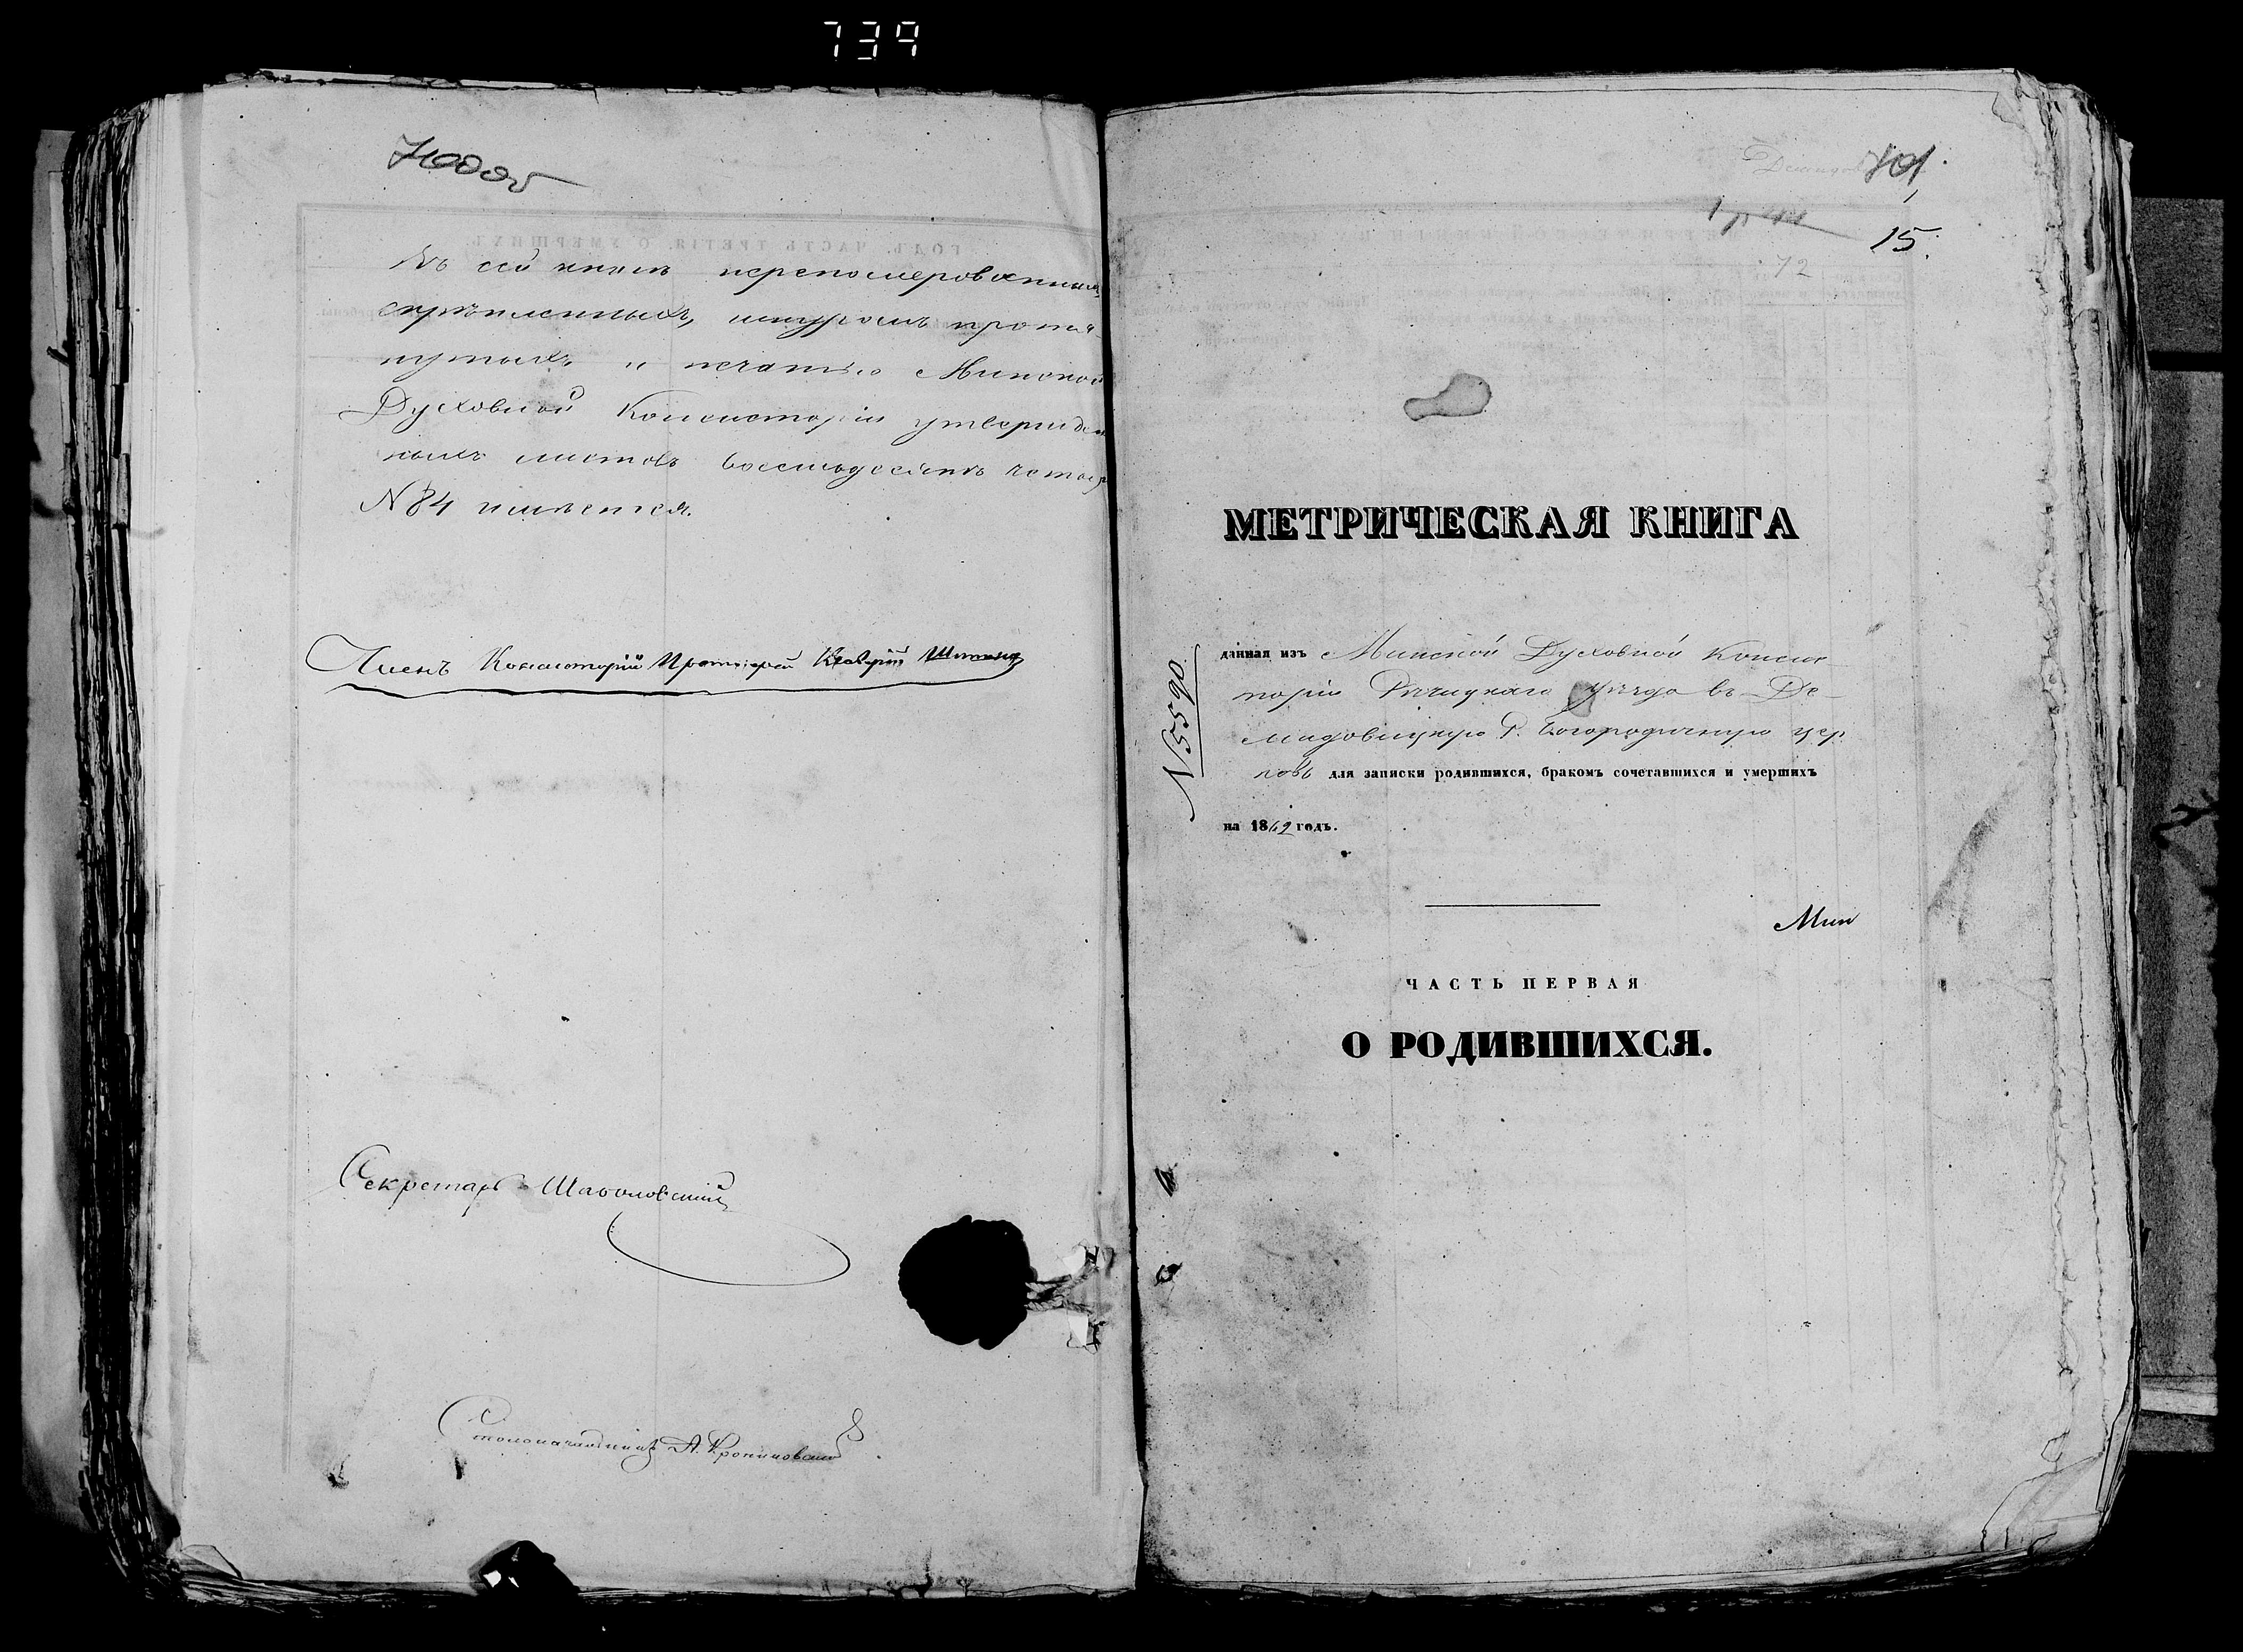 739
700 об
Въ сей книгѣ перепомерованныхъ,
скрѣпленныхъ, шнуромъ протя-
нутыхъ и печатью Минской
Духовной Консисторіи утвержден
ныхъ листовъ восемьдесятъ четыр
N 84 имѣется.
Членъ Консисторіи Протоіерей
Секретарь
Столоначальникъ А.
701.
15.
72
МЕТРИЧЕСКАЯ КНИГА
данная изъ Минской Духовной Консис
торіи Рѣчицкаго уѣзда въ Де-
мидовицкую Р. Богородичную цер
ковь для записки родившихся, бракомъ сочетавшихся и умершихъ
на 1862 годъ.
N 5590
Мин
ЧАСТЬ ПЕРВАЯ
О РОДИВШИХСЯ.